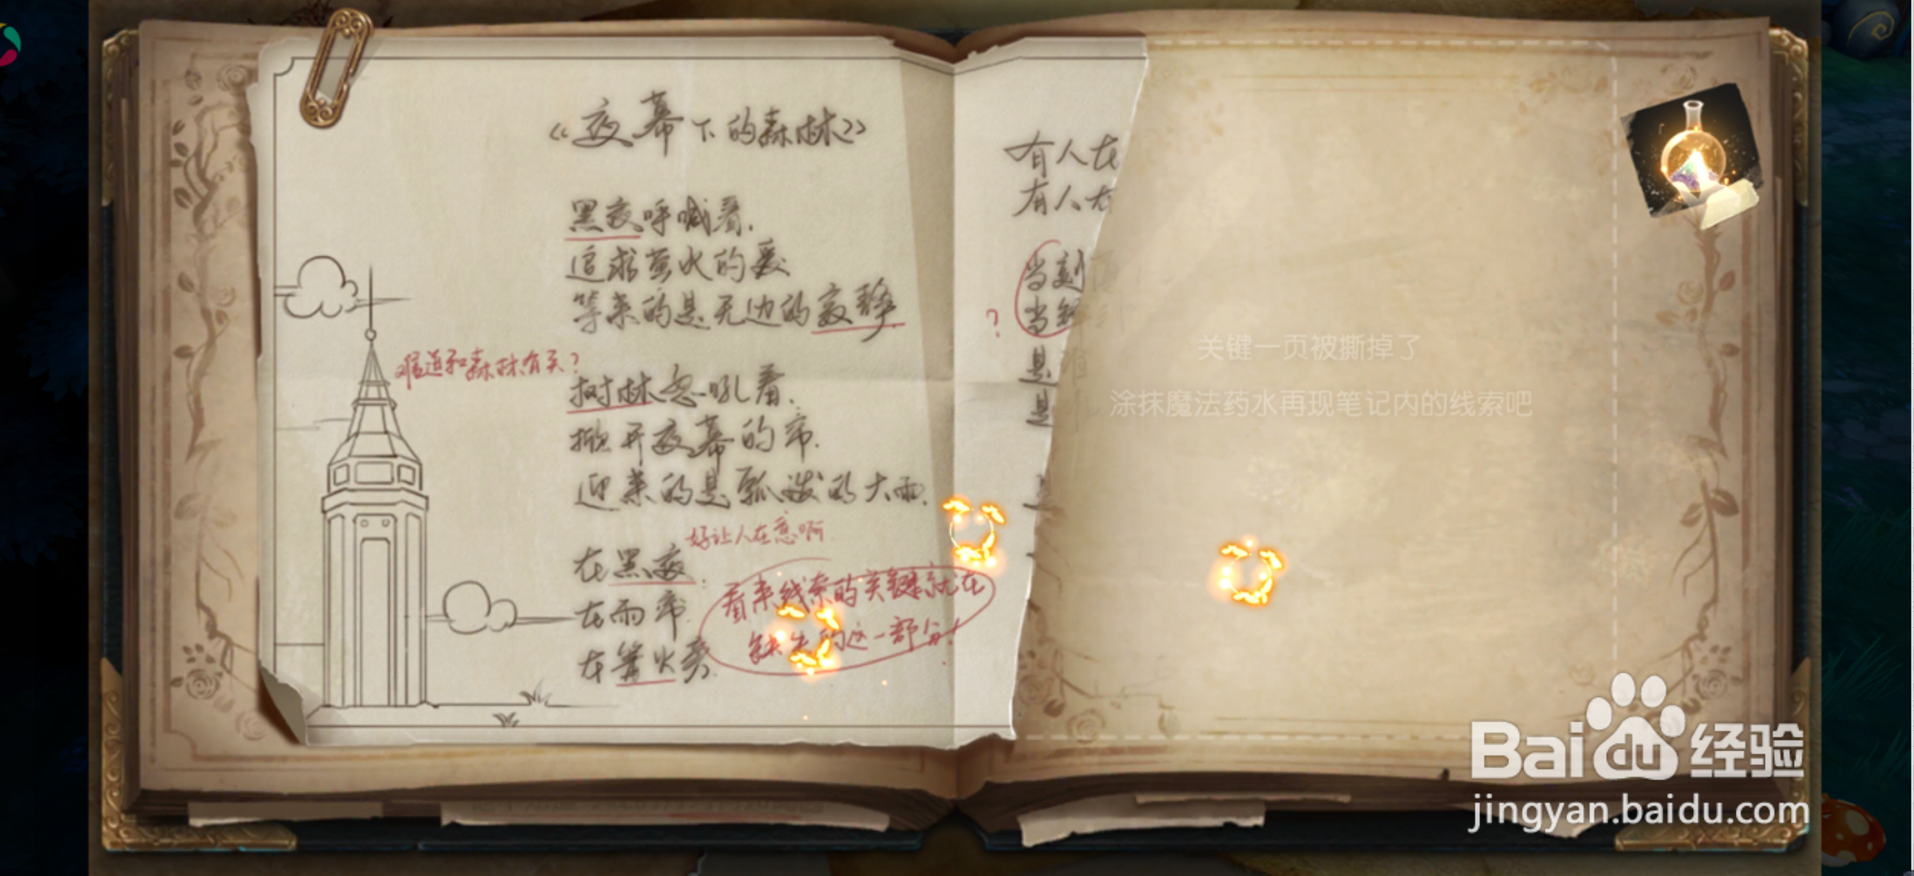 《夜幕下的森林》
黑夜呼喊着.
追求萤火的爱
等来的是无边的寂静
难道和森林有关?
树林怒吼着.
掀开夜幕的帘.
迎来的是瓢泼的大雨.
好让人在意啊
在黑夜.
在雨帘.
在篝火旁.
看来线索的关键就在
缺失的这一部分!
有人在
有人在
当刻
?
当
是
是
关键一页被撕掉了
涂抹魔法药水再现笔记内的线索吧
Bai du 经验
jingyan.baidu.com